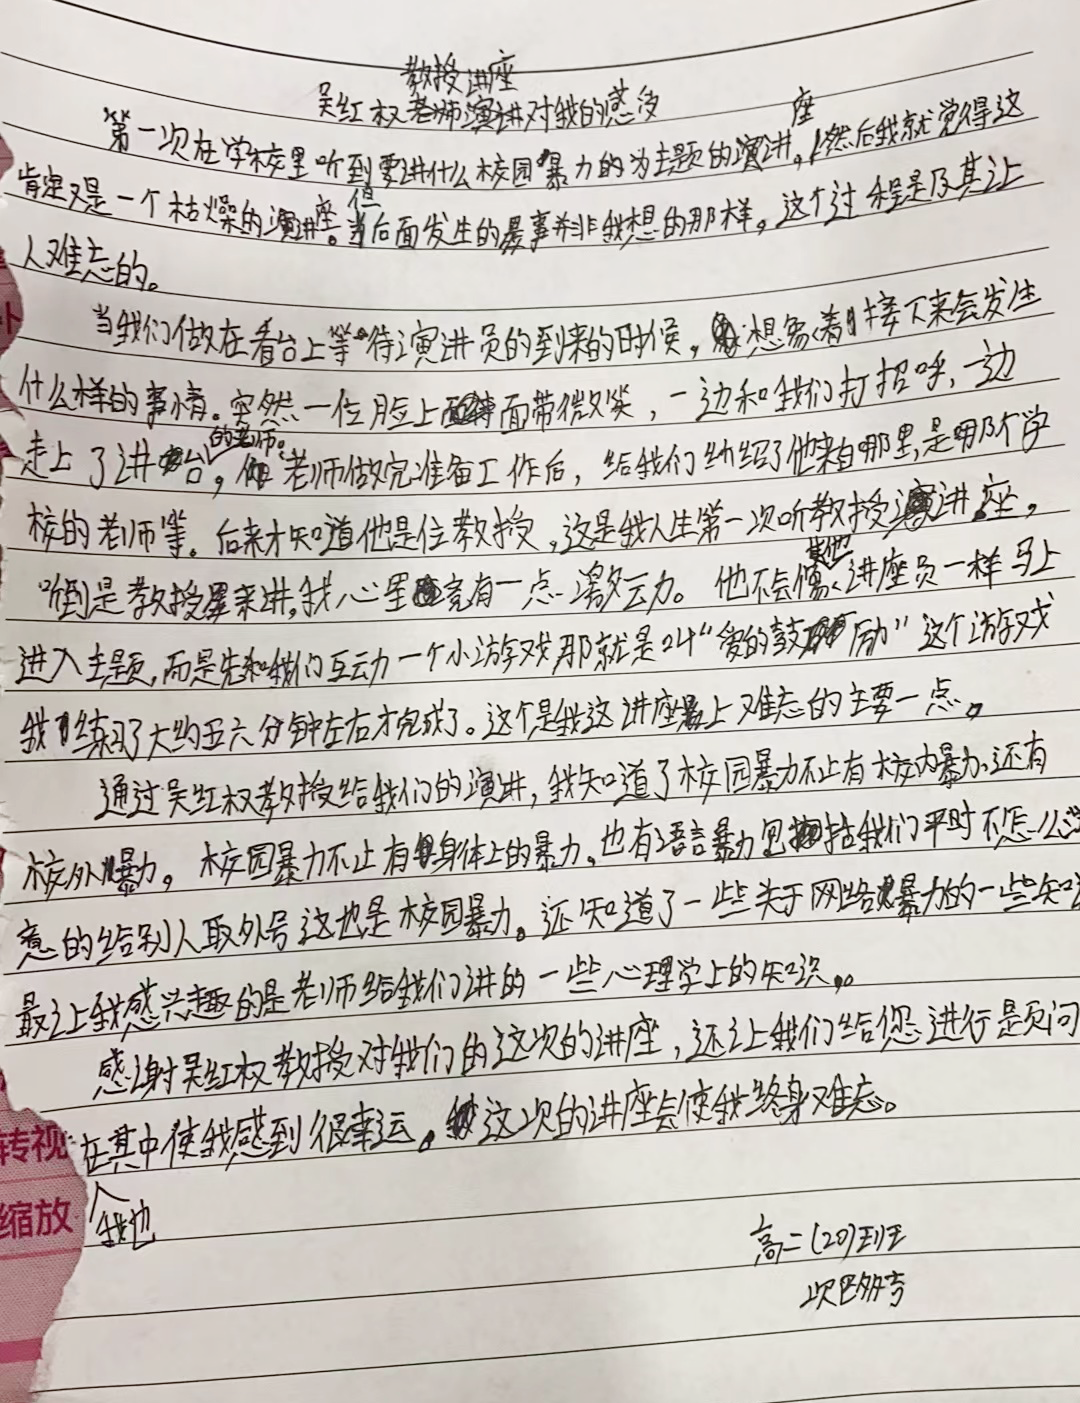 教授讲座
吴红权老师演讲对我的感多
第一次在学校里听到要讲什么校园暴力的为主题的演讲座,然后我就觉得这
肯定又是一个枯燥的演讲座。但当后面发生的事并非我想的那样。这个过程是及其让
人难忘的。
当我们做在看台上等待演讲员的到来的时候,想象着接下来会发生
什么样的事情。突然一位脸上面带微笑,一边和我们打招呼,一边
走上了讲台的老师。老师做完准备工作后,给我们绍了他来自哪里,是哪个学
校的老师等。后来才知道他是位教授,这是我人生第一次听教授讲座,
听到是教授来讲,我心里竟有一点激动。他不会像其他讲座员一样马上
进入主题,而是先和我们互动一个小游戏那就是24“爱的鼓励”这个游戏
我们练习了大约五六分钟左右才完成了。这个是我这讲座最上难忘的主要一点。
通过吴红权教授给我们的演讲,我知道了校园暴力不止有校内暴力、还有
校外暴力。校园暴力不止有身体上的暴力、也有语言暴力包括我们平时不怎么
意的给别人取外号这也是校园暴力。还知道了一些关于网络暴力的一些知
最让我感兴趣的是老师给我们讲的一些心理学上的知识。
感谢吴红权教授对我们的这次的讲座,还让我们给您进行是页问
在其中使我感到很幸运。这次的讲座会使我终身难忘。
我也
转视
缩放
高二(20)班
次巴多吉